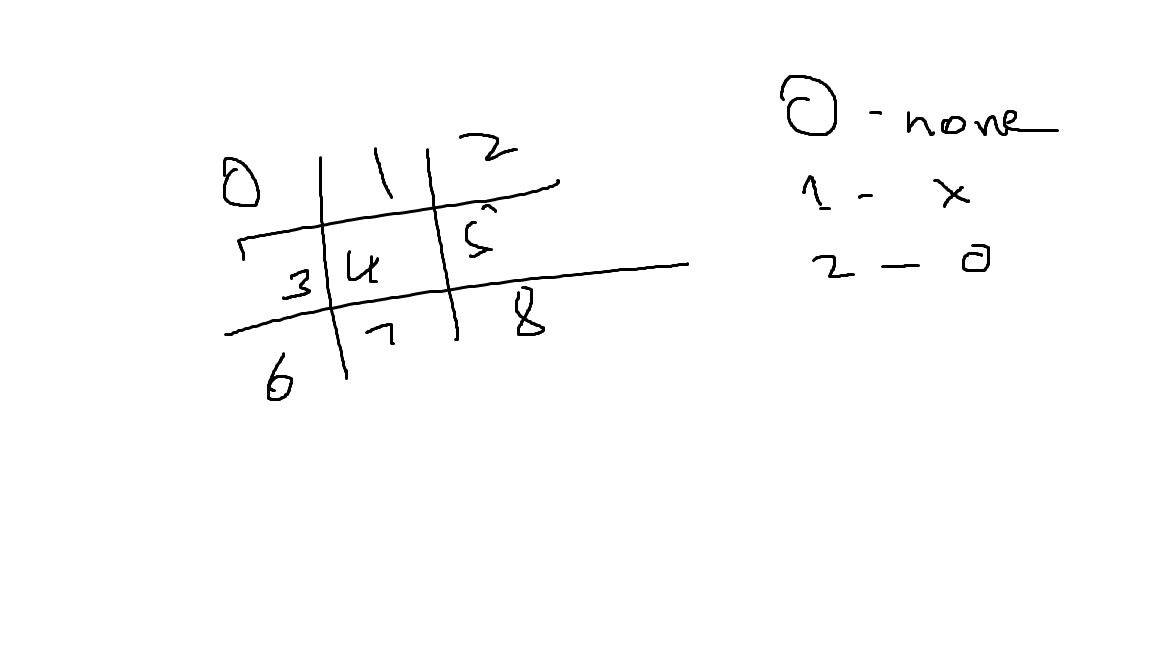 0 1 2
3 4 5
6 7 8
0 - none
1 - x
2 - 0